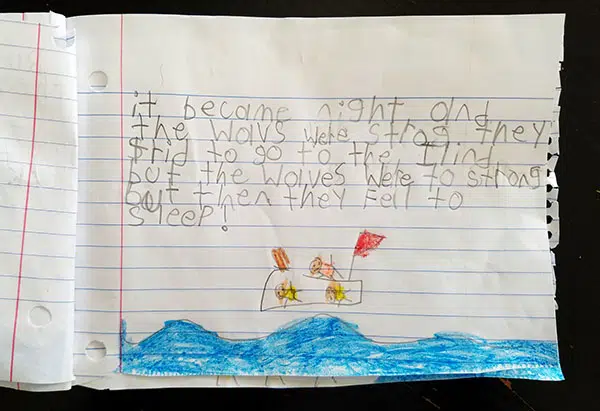 it became night and
the wavs were strog. they
trid to go to the Ilind
but the waves were to strong
but then they fell to
sleep!